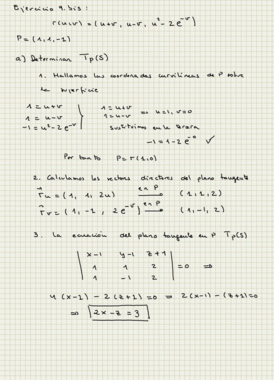 Ejercicio 9.bis:
r(u,v) = (u+v, u-v, u² - 2e^-v)
P = (1,1,-1)
a) Determinar Tp(S)
1. Hallamos las coordenadas curvilíneas de P sobre
la superficie
1 = u+v
1 = u-v
-1 = u² - 2e^-v
1 = u+v
1 = u-v ⇒ u=1, v=0
Sustituimos en la tercera
-1 = 1 - 2e^-0 ✓
Por tanto P = r(1,0)
2. Calculamos los vectores directores del plano tangente
ru = (1, 1, 2u) en P → (1,1,2)
rv = (1, -1, 2e^-v) en P → (1,-1,2)
3. La ecuación del plano tangente en P Tp(S)
| x-1 y-1 z+1 |
| 1 1 2 | = 0 ⇒
| 1 -1 2 |
4(x-1) - 2(z+1) = 0 ⇒ 2(x-1) - (z+1) = 0
⇒ 2x - z = 3